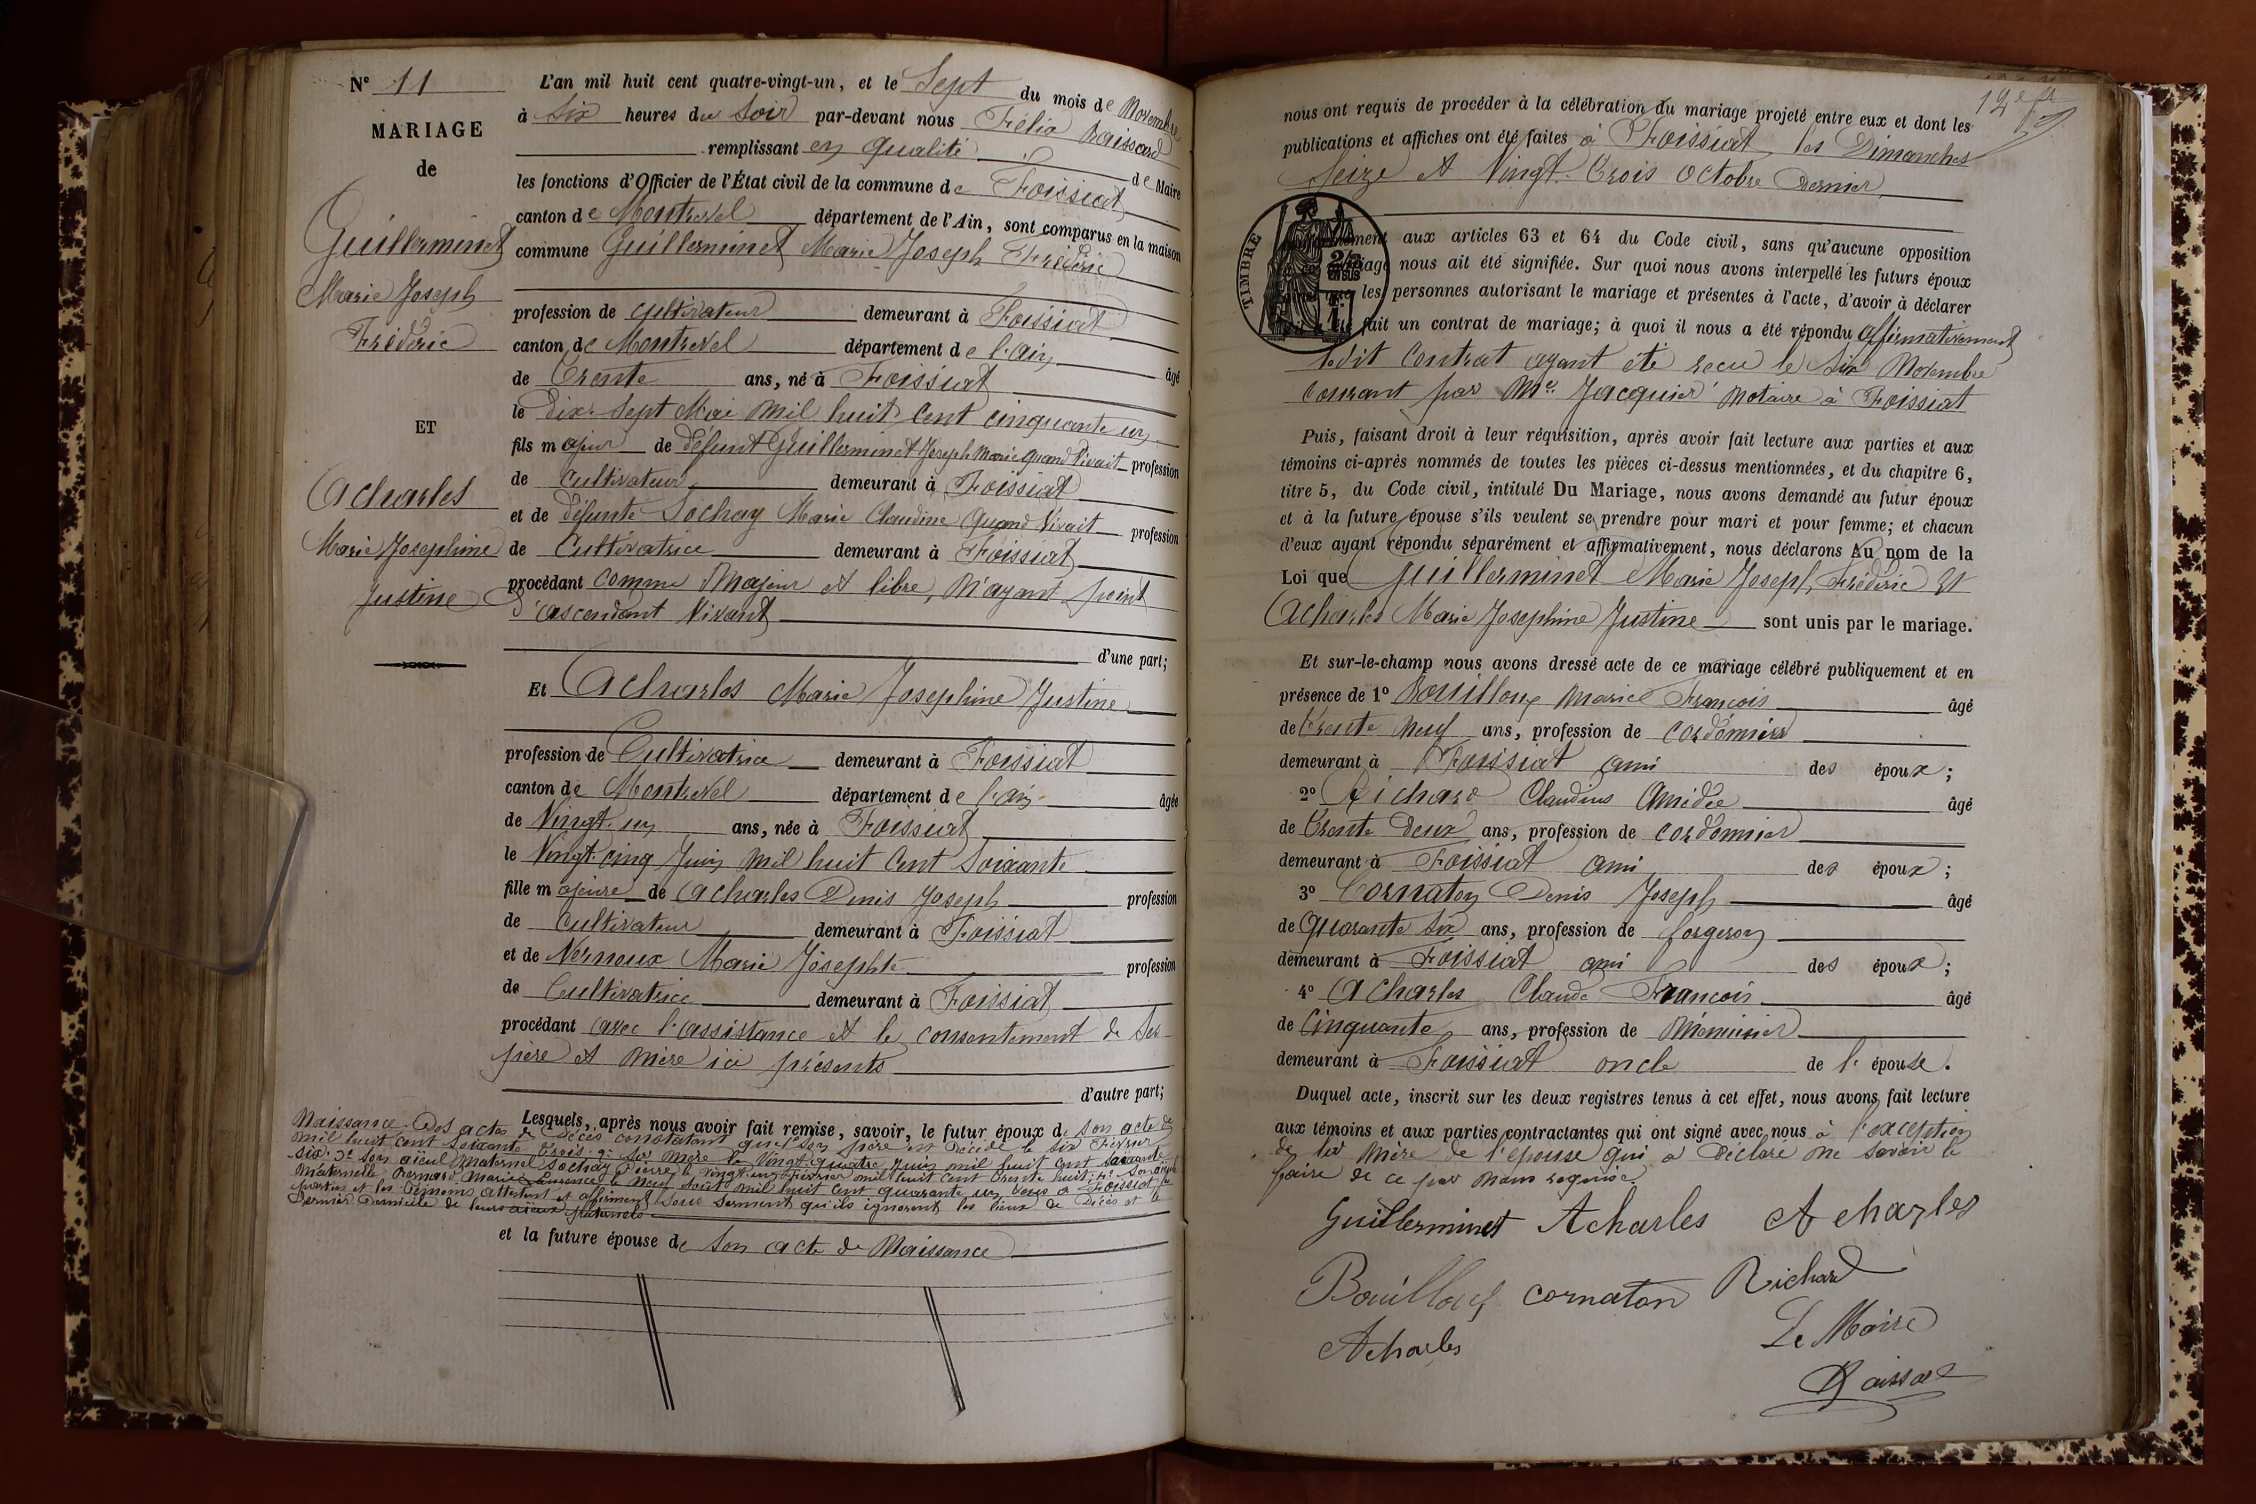 N° 11
MARIAGE
de
Guillerminet
Marie Joseph
Frédéric
ET
Acharles
Marie Josephine
Justine
L'an mil huit cent quatre-vingt-un, et le Sept du mois de Novembre
à Six heures du Soir par-devant nous Félix Raissard
remplissant en qualité de Maire
les fonctions d'Officier de l'État civil de la commune de Foissiat
canton de Montrevel département de l'Ain, sont comparus en la maison
commune Guillerminet Marie Joseph Frédéric
profession de cultivateur demeurant à Foissiat
canton de Montrevel département de l'ain âgé
de Trente ans, né à Foissiat
le Dix-Sept Mai mil huit cent cinquante un
fils majeur de défunt Guillerminet Joseph Marie quand vivait profession
de cultivateur demeurant à Foissiat
et de défunte Sochay Marie Claudine Quand Vivait profession
de Cultivatrice demeurant à Foissiat
procédant comme Majeur et libre, N'ayant point
d'ascendant Vivant
d'une part;
Et Acharles Marie Josephine Justine
profession de Cultivatrice demeurant à Foissiat
canton de Montrevel département de l'ain âgée
de Vingt-un ans, née à Foissiat
le Vingt-cinq Juin mil huit Cent Soixante
fille majeure de Acharles Denis Joseph profession
de cultivateur demeurant à Foissiat
et de Vernoux Marie Josephte profession
de Cultivatrice demeurant à Foissiat
procédant avec l'assistance et le consentement de Ses
père et mère ici présents
d'autre part;
Lesquels, après nous avoir fait remise, savoir, le futur époux de son acte de
Naissance. Des actes de Décès constatant que Son père est Décédé le Six Février
mil huit cent Soixante Trois; Sa mère le Vingt-quatre Juin mil huit cent Soixante
six. Son aïeul maternel Sochay Pierre le vingt-un Février mil huit cent Trente huit; Son aïeule
Maternelle Bernard Marie le Neuf Août mil huit cent quarante un, Tous à Foissiat
parties et les Témoins attestent et affirment Sous Serment qu'ils ignorent les lieux de Décès et le
Dernier Domicile de leurs aïeux paternels
et la future épouse de Son acte de Naissance
nous ont requis de procéder à la célébration du mariage projeté entre eux et dont les
publications et affiches ont été faites à Foissiat les Dimanches
Seize et Vingt-Trois Octobre Dernier
TIMBRE
aux articles 63 et 64 du Code civil, sans qu'aucune opposition
nous ait été signifiée. Sur quoi nous avons interpellé les futurs époux
les personnes autorisant le mariage et présentes à l'acte, d'avoir à déclarer
fait un contrat de mariage; à quoi il nous a été répondu affirmativement
ledit Contrat ayant été reçu le Six Novembre
Courant par Me. Jacquier Notaire à Foissiat
Puis, faisant droit à leur réquisition, après avoir fait lecture aux parties et aux
témoins ci-après nommés de toutes les pièces ci-dessus mentionnées, et du chapitre 6,
titre 5, du Code civil, intitulé Du Mariage, nous avons demandé au futur époux
et à la future épouse s'ils veulent se prendre pour mari et pour femme; et chacun
d'eux ayant répondu séparément et affirmativement, nous déclarons Au nom de la
Loi que Guillerminet Marie Joseph Frédéric Et
Acharles Marie Josephine Justine sont unis par le mariage.
Et sur-le-champ nous avons dressé acte de ce mariage célébré publiquement et en
présence de 1° Bouilloux Marie François âgé
de Trente Neuf ans, profession de cordonnier
demeurant à Foissiat ami des époux;
2° Richard Claudius Amédée âgé
de Trente Deux ans, profession de cordonnier
demeurant à Foissiat ami des époux;
3° Cornaton Denis Joseph âgé
de Quarante Six ans, profession de forgeron
demeurant à Foissiat ami des époux;
4° Acharles Claude François âgé
de Cinquante ans, profession de Menuisier
demeurant à Foissiat oncle de l'épouse.
Duquel acte, inscrit sur les deux registres tenus à cet effet, nous avons fait lecture
aux témoins et aux parties contractantes qui ont signé avec nous à l'exception
de la Mère de l'épouse qui a Déclaré ne Savoir le
faire de ce par nous requise
Guillerminet Acharles Acharles
Bouilloux cornaton Richard
Acharles Le Maire
Raissard